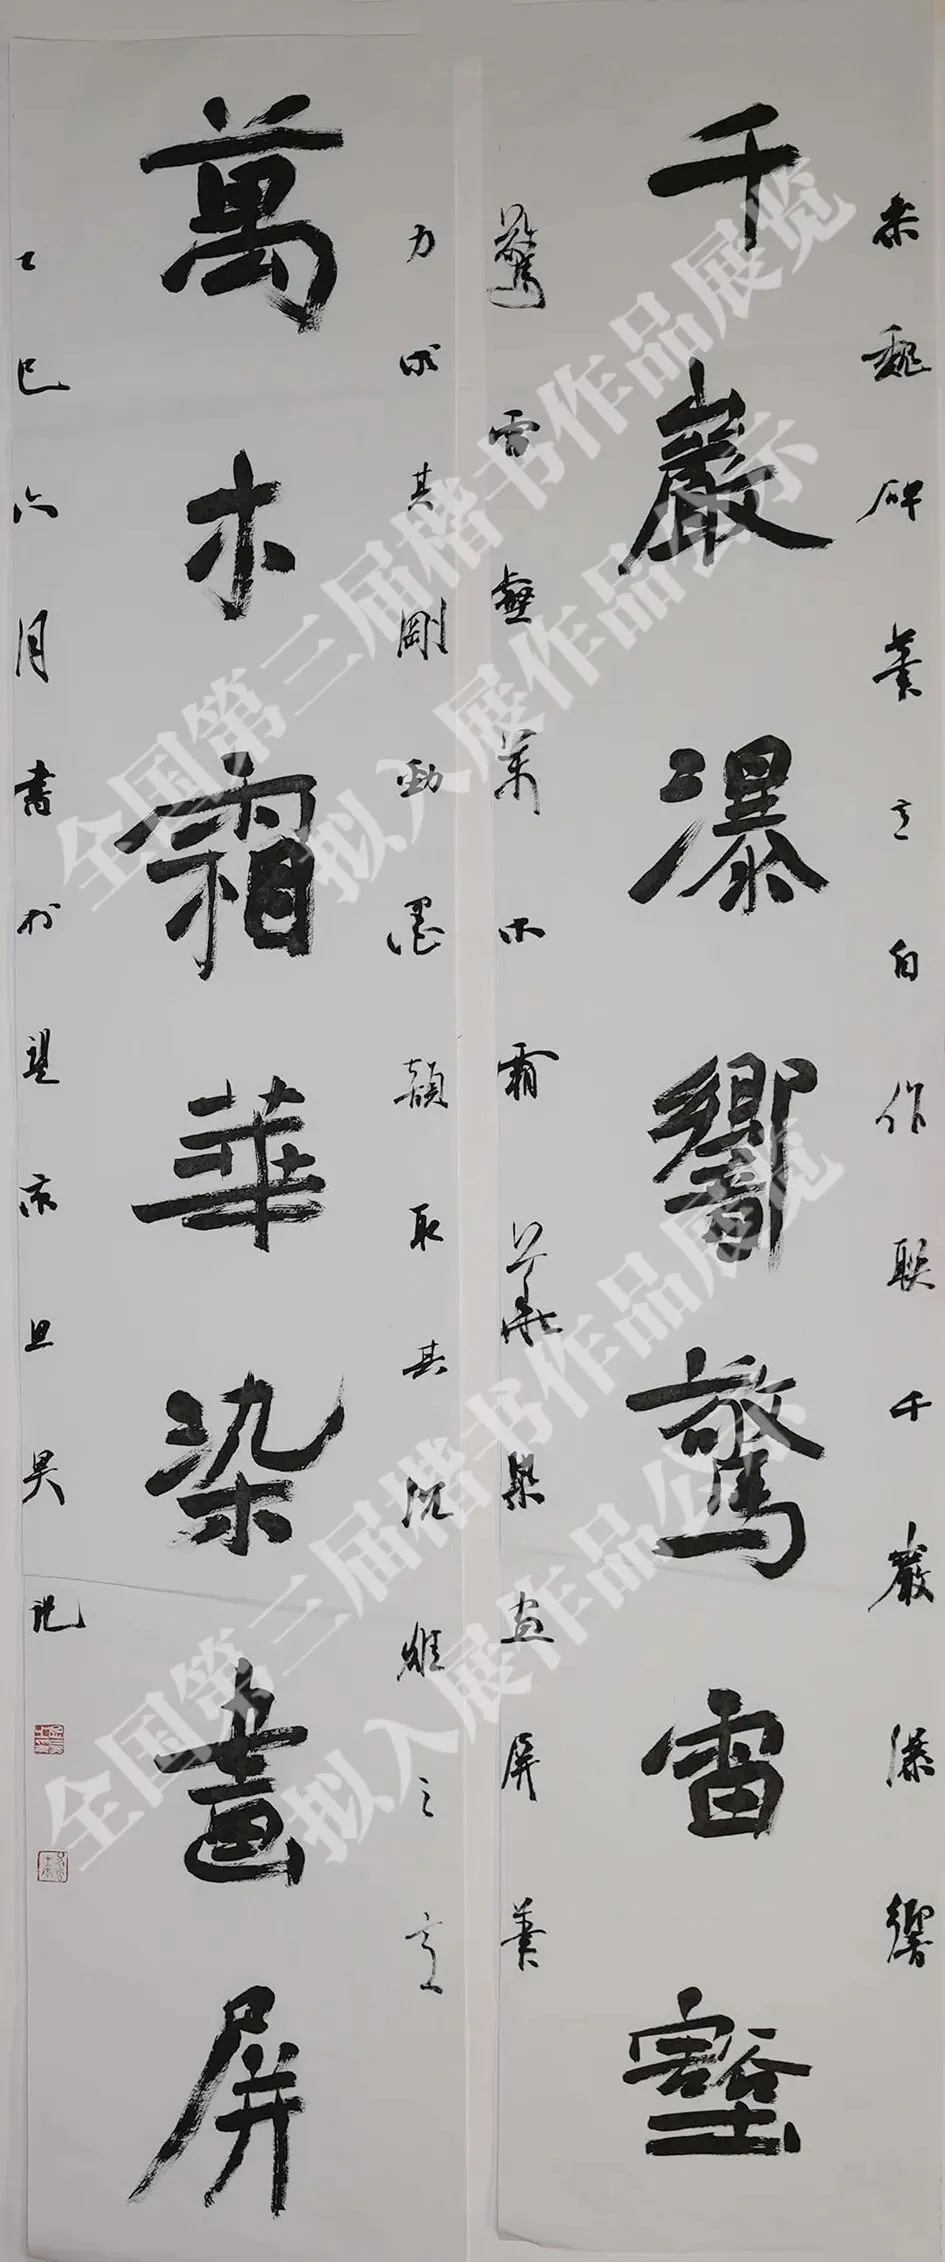 参魏碑筆意自作聯千巖瀑響
千巖瀑響驚雷壑
驚雷壑萬木霜華染畫屏筆
力求其剛勁墨韻取其沉雄之意
萬木霜華染畫屏
乙巳六月書於望京旦昊記
全国第三届楷书作品展览
拟入展作品公示
全国第三届楷书作品展览
拟入展作品公示